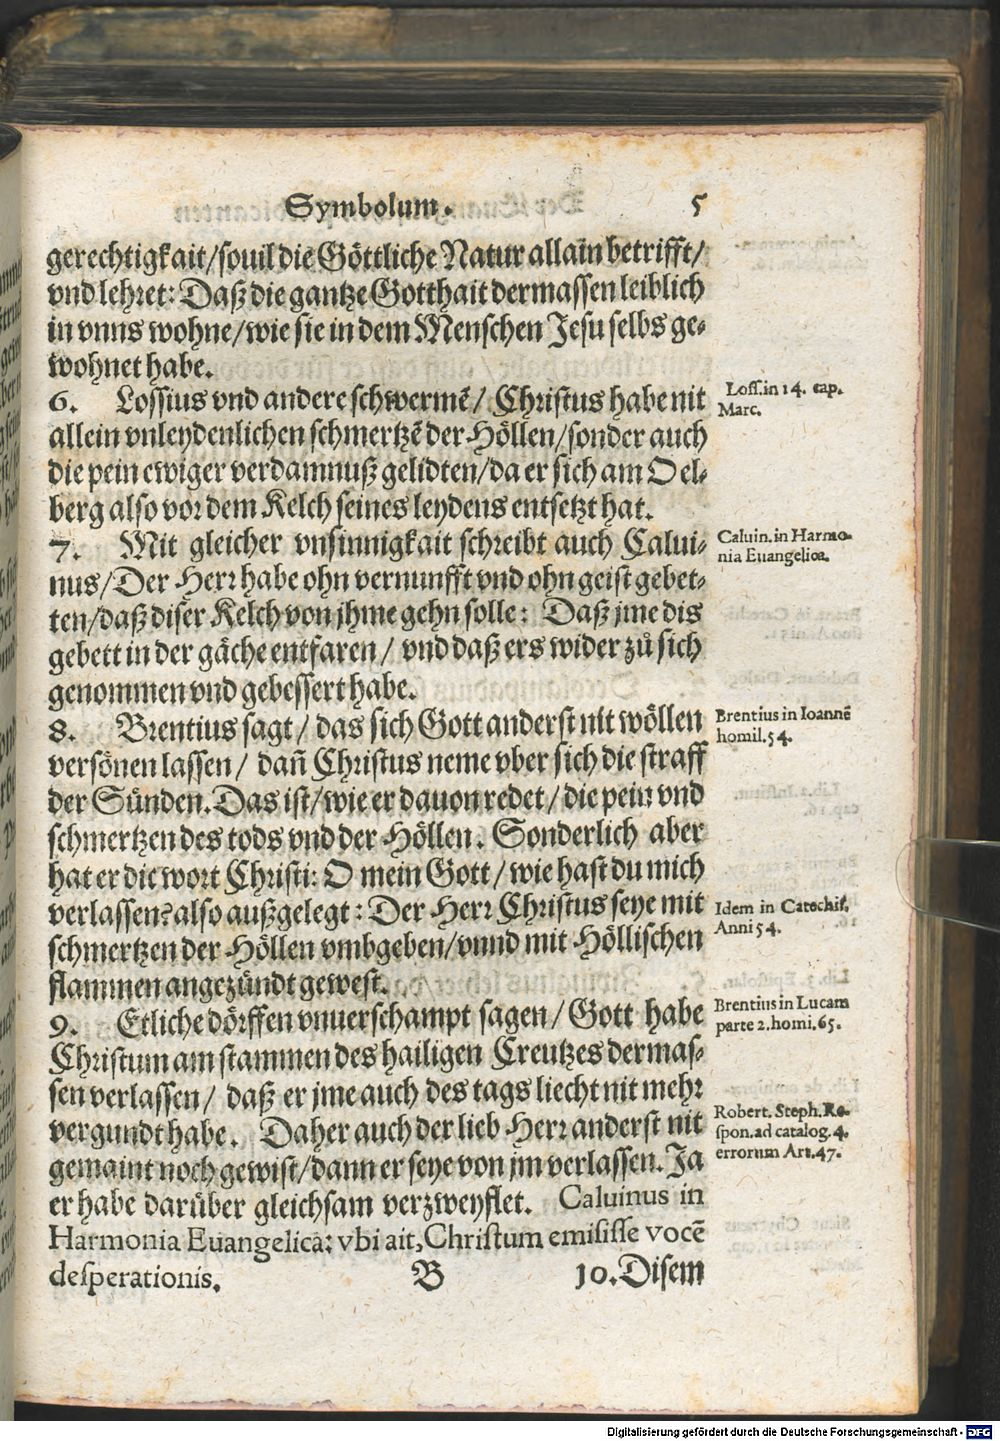 Symbolum. 5
gerechtigkait/souil die Göttliche Natur allain betrifft/
vnd lehret: Daß die gantze Gotthait dermassen leiblich
in vnns wohne/wie sie in dem Menschen Jesu selbs ge-
wohnet habe.
6. Lossius vnd andere schwermẽ/ Christus habe nit
allein vnleydenlichen schmertzẽ der Höllen/sonder auch
die pein ewiger verdamnuß gelidten/da er sich am Oel-
berg also vor dem Kelch seines leydens entsetzt hat.
Loss. in 14. cap.
Marc.
7. Mit gleicher vnsinnigkait schreibt auch Calui-
nus/Der Herr habe ohn vernunfft vnd ohn geist gebet-
ten/daß diser Kelch von jhme gehn solle: Daß jme dis
gebett in der gäche entfaren/ vnd daß ers wider zů sich
genommen vnd gebessert habe.
Caluin. in Harmo-
nia Euangelica.
8. Brentius sagt/ das sich Gott anderst nit wöllen
versönen lassen/ dañ Christus neme vber sich die straff
der Sünden. Das ist/wie er dauon redet/die pein vnd
schmertzen des tods vnd der Höllen. Sonderlich aber
hat er die wort Christi: O mein Gott/wie hast du mich
verlassen? also außgelegt: Der Herr Christus seye mit
schmertzen der Höllen vmbgeben/vnnd mit Höllischen
flammen angezündt gewest.
Brentius in Ioannẽ
homil. 54.
Idem in Catechis.
Anni 54.
9. Etliche dörffen vnuerschampt sagen/ Gott habe
Christum am stammen des hailigen Creutzes dermas-
sen verlassen/ daß er jme auch des tags liecht nit mehr
vergundt habe. Daher auch der lieb Herr anderst nit
gemaint noch gewist/dann er seye von jm verlassen. Ja
er habe darüber gleichsam verzweyflet. Caluinus in
Harmonia Euangelica: vbi ait, Christum emisisse vocẽ
desperationis. B 10. Disem
Brentius in Lucam
parte 2. homi. 65.
Robert. Steph. Re-
spon. ad catalog. 4.
errorum Art. 47.
Digitalisierung gefördert durch die Deutsche Forschungsgemeinschaft - DFG